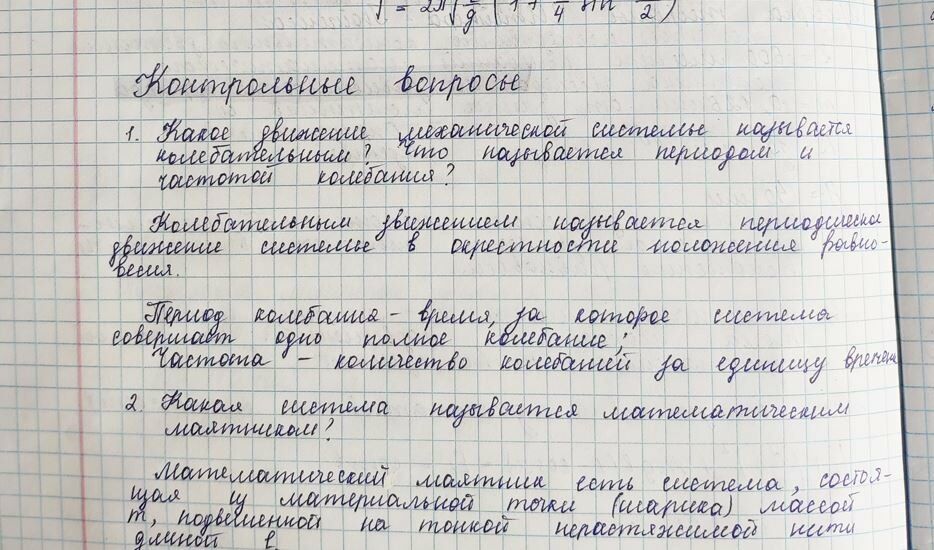 T = 2π√ l/g (1 + 1/4 sin 2)
Контрольные вопросы
1. Какое движение механической системы называется
колебательным? Что называется периодом и
частотой колебания?
Колебательным движением называется периодическое
движение системы в окрестности положения равно-
весия.
Период колебания - время, за которое система
совершает одно полное колебание;
Частота - количество колебаний за единицу времени
2. Какая система называется математическим
маятником?
Математический маятник есть система, состоя-
щая из материальной точки (шарика) массой
m, подвешенной на тонкой нерастяжимой нити
длиной l